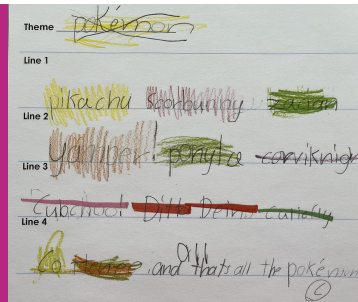 Theme pokémon
Line 1
pikachu scorbunny zacian
Line 2
yamper! ponyta corviknigh
Line 3
cubchoo! Ditto Deino cutiefly
Line 4
and that's all the pokémon